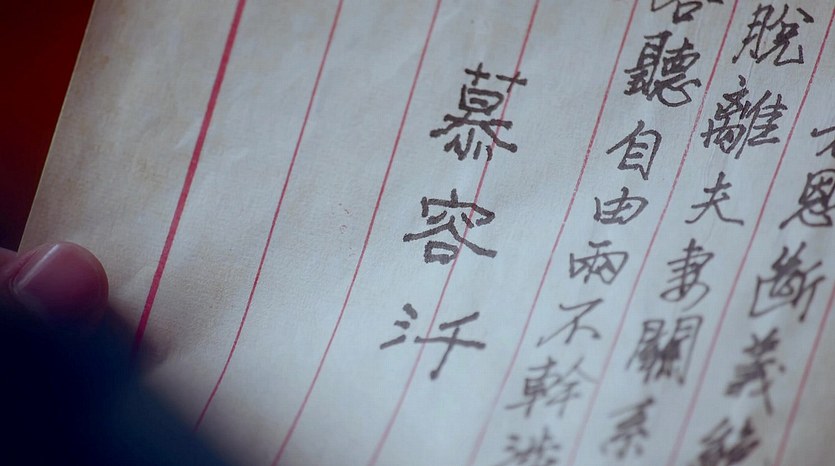 恩斷義絕
脫離夫妻關系
聽自由兩不幹涉
慕容汘